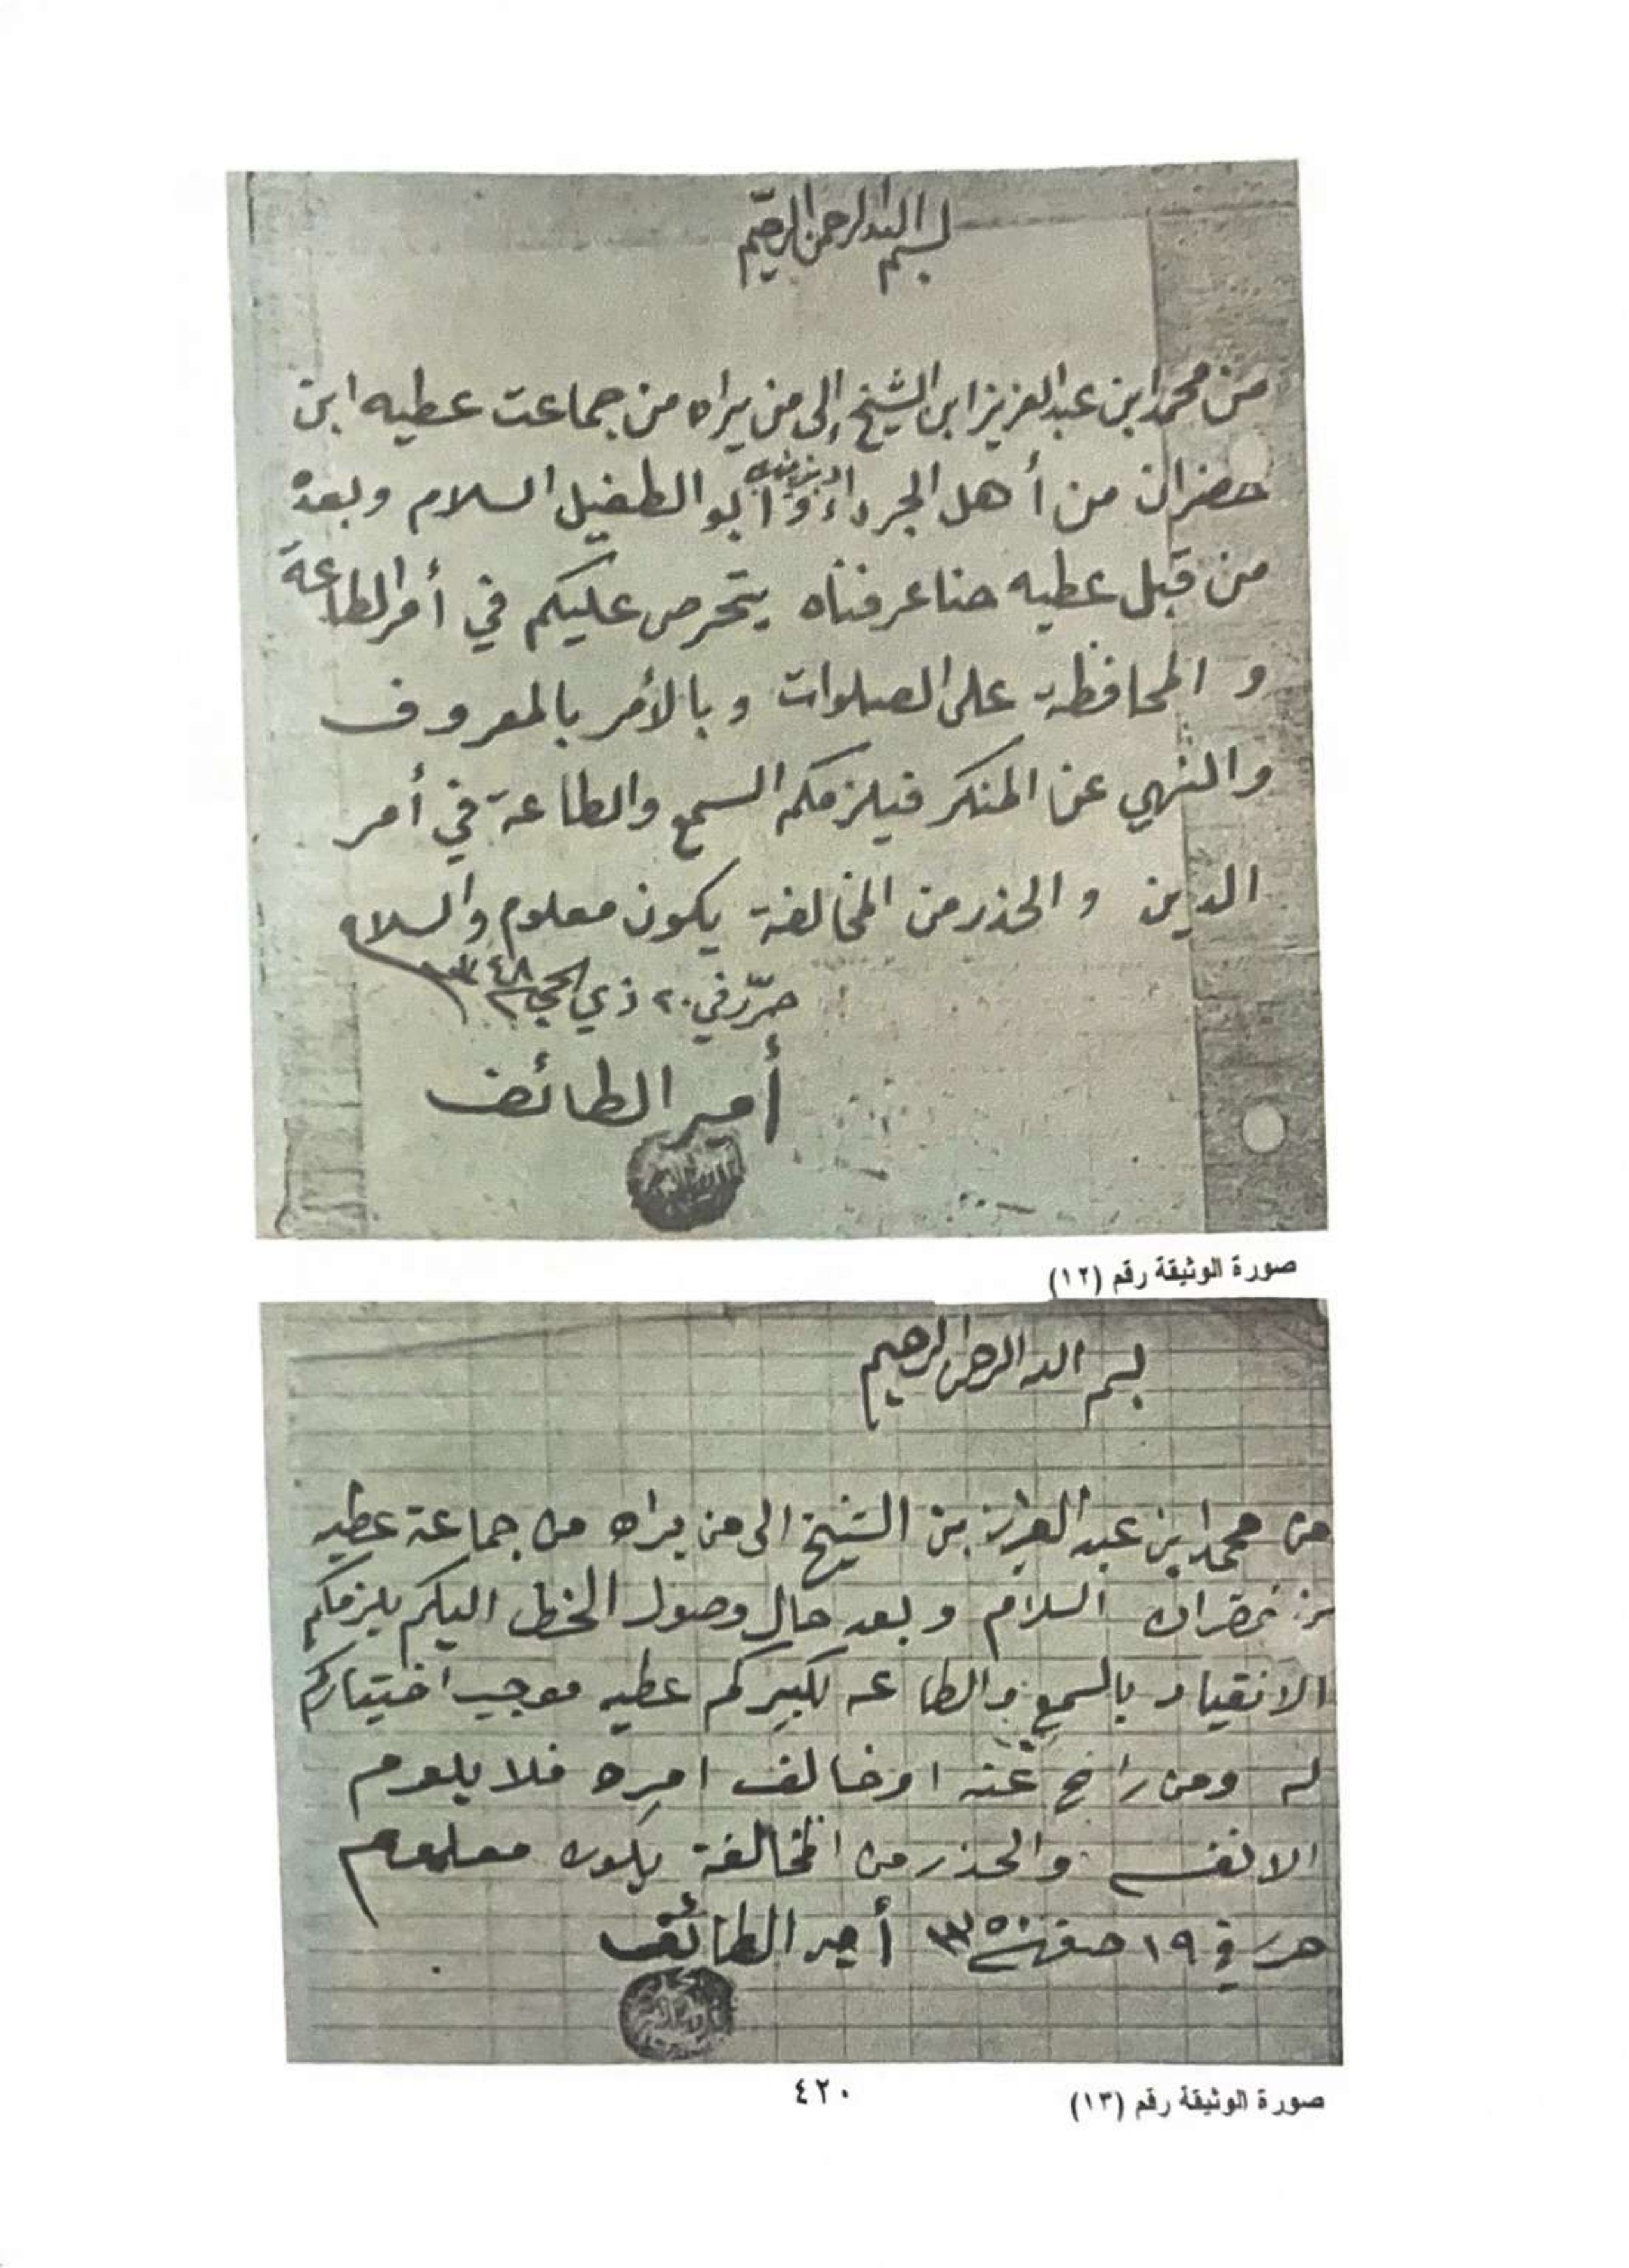 بسم الله الرحمن الرحيم
من محمد ابن عبد العزيز ابن الشيخ إلى من يراه من جماعت عطيه ابن
خضران من أهل الجرداء و أبو الطفيل السلام وبعده
من قبل عطيه حنا عرفناه يتحرص عليكم في أمر الطاعة
و المحافظة على الصلوات و بالأمر بالمعروف
والنهي عن المنكر فيلزمكم السمع والطاعة في أمر
الدين و الحذر من المخالفة يكون معلوم والسلام
حرّر في ٢٠ ذي الحجة ١٣٤٨
أمير الطائف
صورة الوثيقة رقم (١٢)
بسم الله الرحمن الرحيم
من محمد ابن عبد العزيز بن الشيخ الى من يراه من جماعة عطيه
بن خضران السلام و بعد حال وصول الخط اليكم يلزمكم
الانقياد بالسمع والطاعه لكبيركم عطيه موجب اختياركم
له ومن عنه او خالف امره فلا يلوم
الا نفسه والحذر من المخالفة يكون معلوم
حرر في ١٩ صفر سنة ١٣٥٠ أمير الطائف
صورة الوثيقة رقم (١٣)
٤٢٠